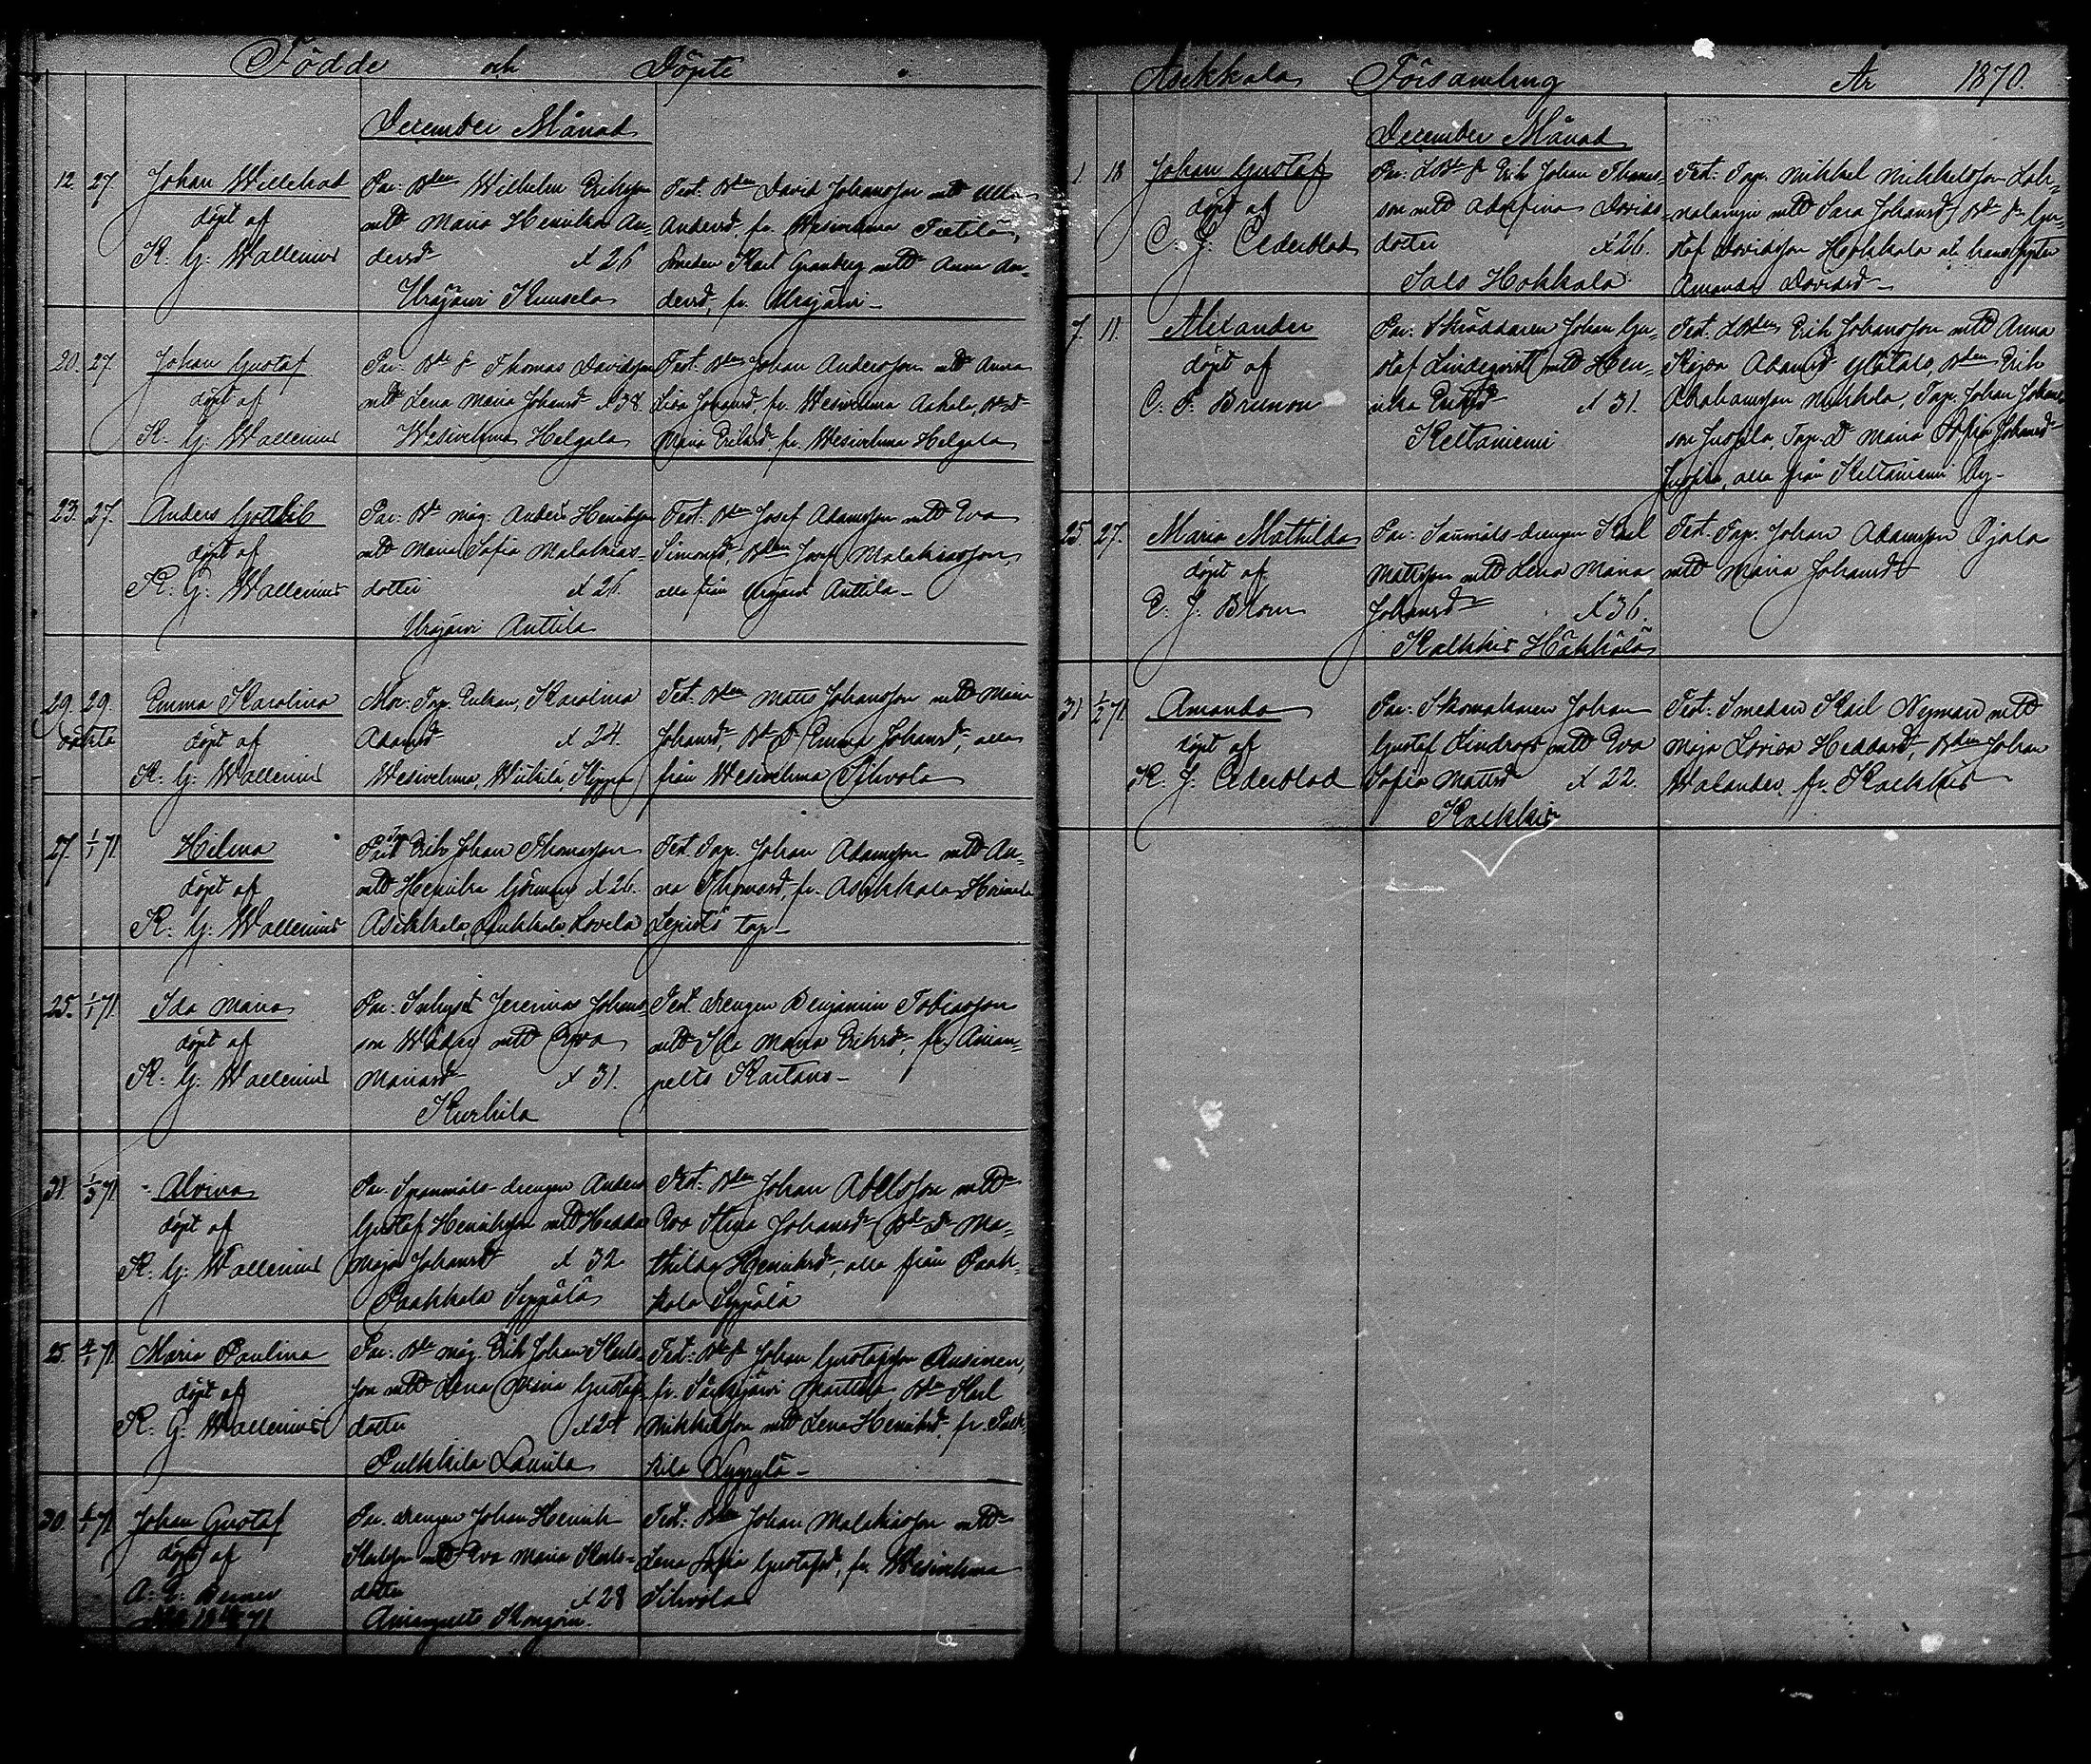 Födde och Döpte
December Månad
12. 27. Johan Willehad
döpt af
K. G. Wallenius
Par: Bden Wilhelm Eriksson
mtt Maria Henrika An-
dersdr x 26
Urajärvi Kunsela
Test. Bden David Johansson mtt Ulla
Andersd. fr. Wesivehma
Smeden Karl Granberg mtt Anna An-
dersd, fr. Urajärvi
20. 27. Johan Gustaf
döpt af
K. G. Wallenius
Par: Bde s. Thomas Davidsson
mtt Lena Maria Johansd x 38.
Wesivehma Helgala
Test. Bden Johan Andersson mtt Anna
Lisa Johansd, fr. Wesivehma Aakala, Bde d
Maria Eriksd. fr. Wesivehma Helgala
23. 27. Anders Gottlib
döpt af
K. G. Wallenius
Par: Bde måg. Anders Henriksson
mtt Maria Sofia Malakias-
dotter x 26.
Urajärvi Anttila
Test. Bden Josef Adamsson mtt Eva
Simonsd, Bden Josef Malakiasson,
alla från Urajärvi Anttila
29. 29. Emma Karolina
oäkta döpt af
K. G. Wallenius
Mor: Torp. Enkan, Karolina
Adamsd x 24.
Wesivehma,
Test. Bden Matts Johansson mtt Maria
Johansd, Bde d Emma Johansd, alla
från Wesivehma Sihvola
27. 1/1 71 Hilma
döpt af
K. G. Wallenius
Par: Erik Johan Thomasson
mtt Henrika x 26.
Asikkala,
Test. Torp. Johan Adamsson mtt An-
na Thomasd, fr. Asikkala
Lepistö torp
25. 1/1 71. Ida Maria
döpt af
K. G. Wallenius
Par: Inhyses Jeremias Johans-
son mtt Eva
x 31.
Kurhila
Test. drengen Benjamin Tobiasson
mtt Ida Maria Eriksd, fr. Anian-
pelto Kaitans
31. 71 Alvina
döpt af
K. G. Wallenius
Par. Spanmåls-drengen Anders
Gustaf Henriksson mtt Hedda
Maja Johansd x 32
Paakkola Seppälä
Test. Bden Johan Abelsson mtt
Eva Stina Johansd Bde d Ma-
thilda Henriksd, alla från Paak-
kola Seppälä
25. 71. Maria Paulina
döpt af
K. G. Wallenius
Par: Bde måg. Erik Johan Karls-
son mtt Lena Maria Gustafs-
dotter
Pulkkila Laurila
Test: Bde s Johan Gustafsson Rusinen,
fr. Särkijärvi Marttila Bden Karl
Mikkelsson mtt Lena Henriksd. fr. Pulk-
kila
30. 71 Johan Gustaf
döpt af
Par. drengen Johan Henrik
Karlsson mtt Eva Maria Karls-
dotter x 28
Anianpelto
Test: Bden Johan Malakiasson mtt
Lena Sofia Gustafsd, fr. Wesivehma
Sihvola
Asikkala Församling År 1870.
December Månad
1. 18 Johan Gustaf
döpt af
C. J. Cederblad
Par: Bde s Erik Johan Thomas-
son mtt Adolfina Davids-
dotter x 26.
Sals Hokkala
Test: Torp. Mikkel Mikkelsson
mtt Sara Johansd, Bde s Gu-
staf Davidsson Hokkala
Amanda Davidsd
7. 11. Alexander
döpt af
C. F. Brunou
Par: Skräddaren Johan Gu-
staf Lindeqvist mtt Hen-
rika Eriksd x 31.
Keltaniemi
Test. Bden Erik Johansson mtt Anna
Kajsa Adamsd Ylätalo, Bden Erik
Abrahamsson Nukkola, Torp. Johan Johans-
son Jussila, Torp. d Maria Sofia Johansd
Jussila, alla från Keltaniemi By
25. 27. Maria Mathilda
döpt af
C. J. Blom
Par: Spanmåls-drengen Karl
Mattsson mtt Lena Maria
Johansd x 36.
Kalkkis Häkkälä
Test. Torp. Johan Adamsson Ojala
mtt Maria Johansd
31 1/2 71 Amanda
döpt af
K. J. Cederblad
Par: Skomakaren Johan
Gustaf Lindroos mtt Eva
Sofia Mattsd x 22.
Kalkkis
Test: Smeden Karl Nyman mtt
Maja Lovisa Heddasd, Bden Johan
Walander. fr. Kalkkis